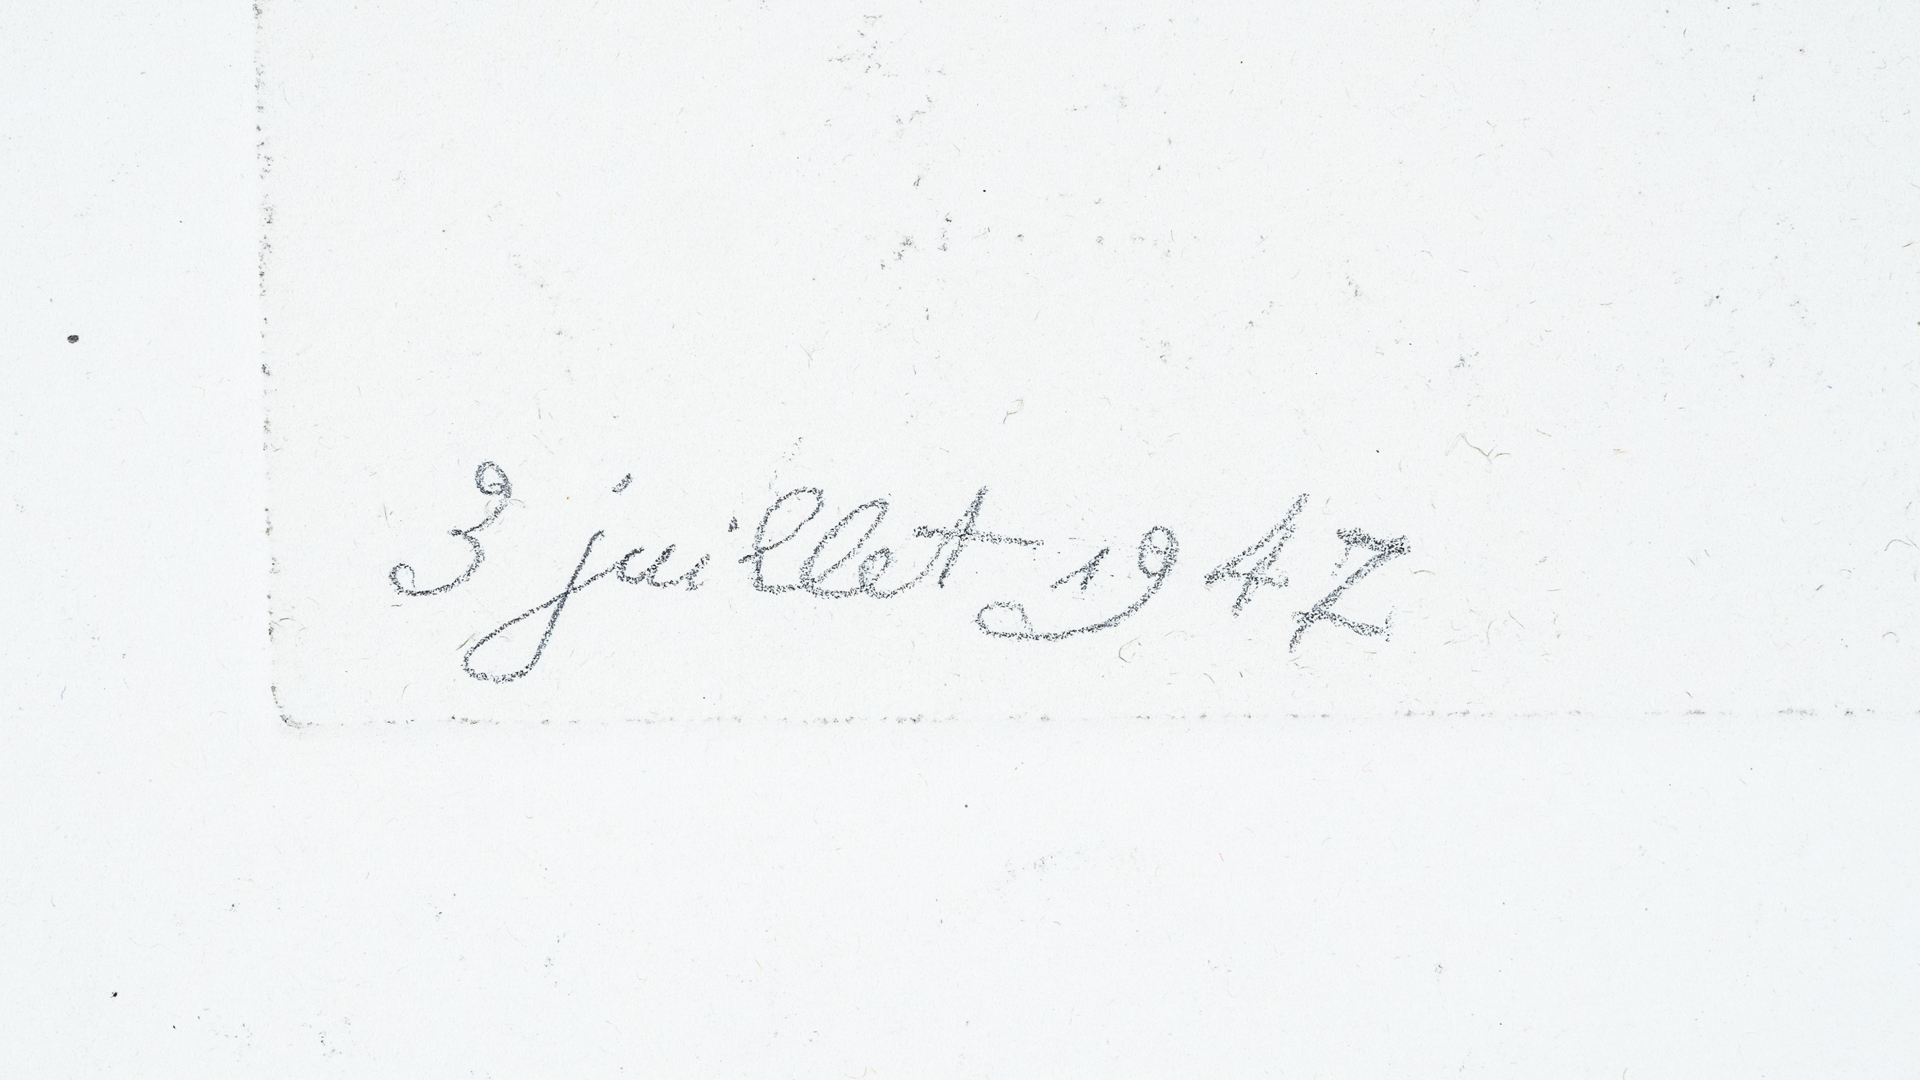 3 juillet 1942